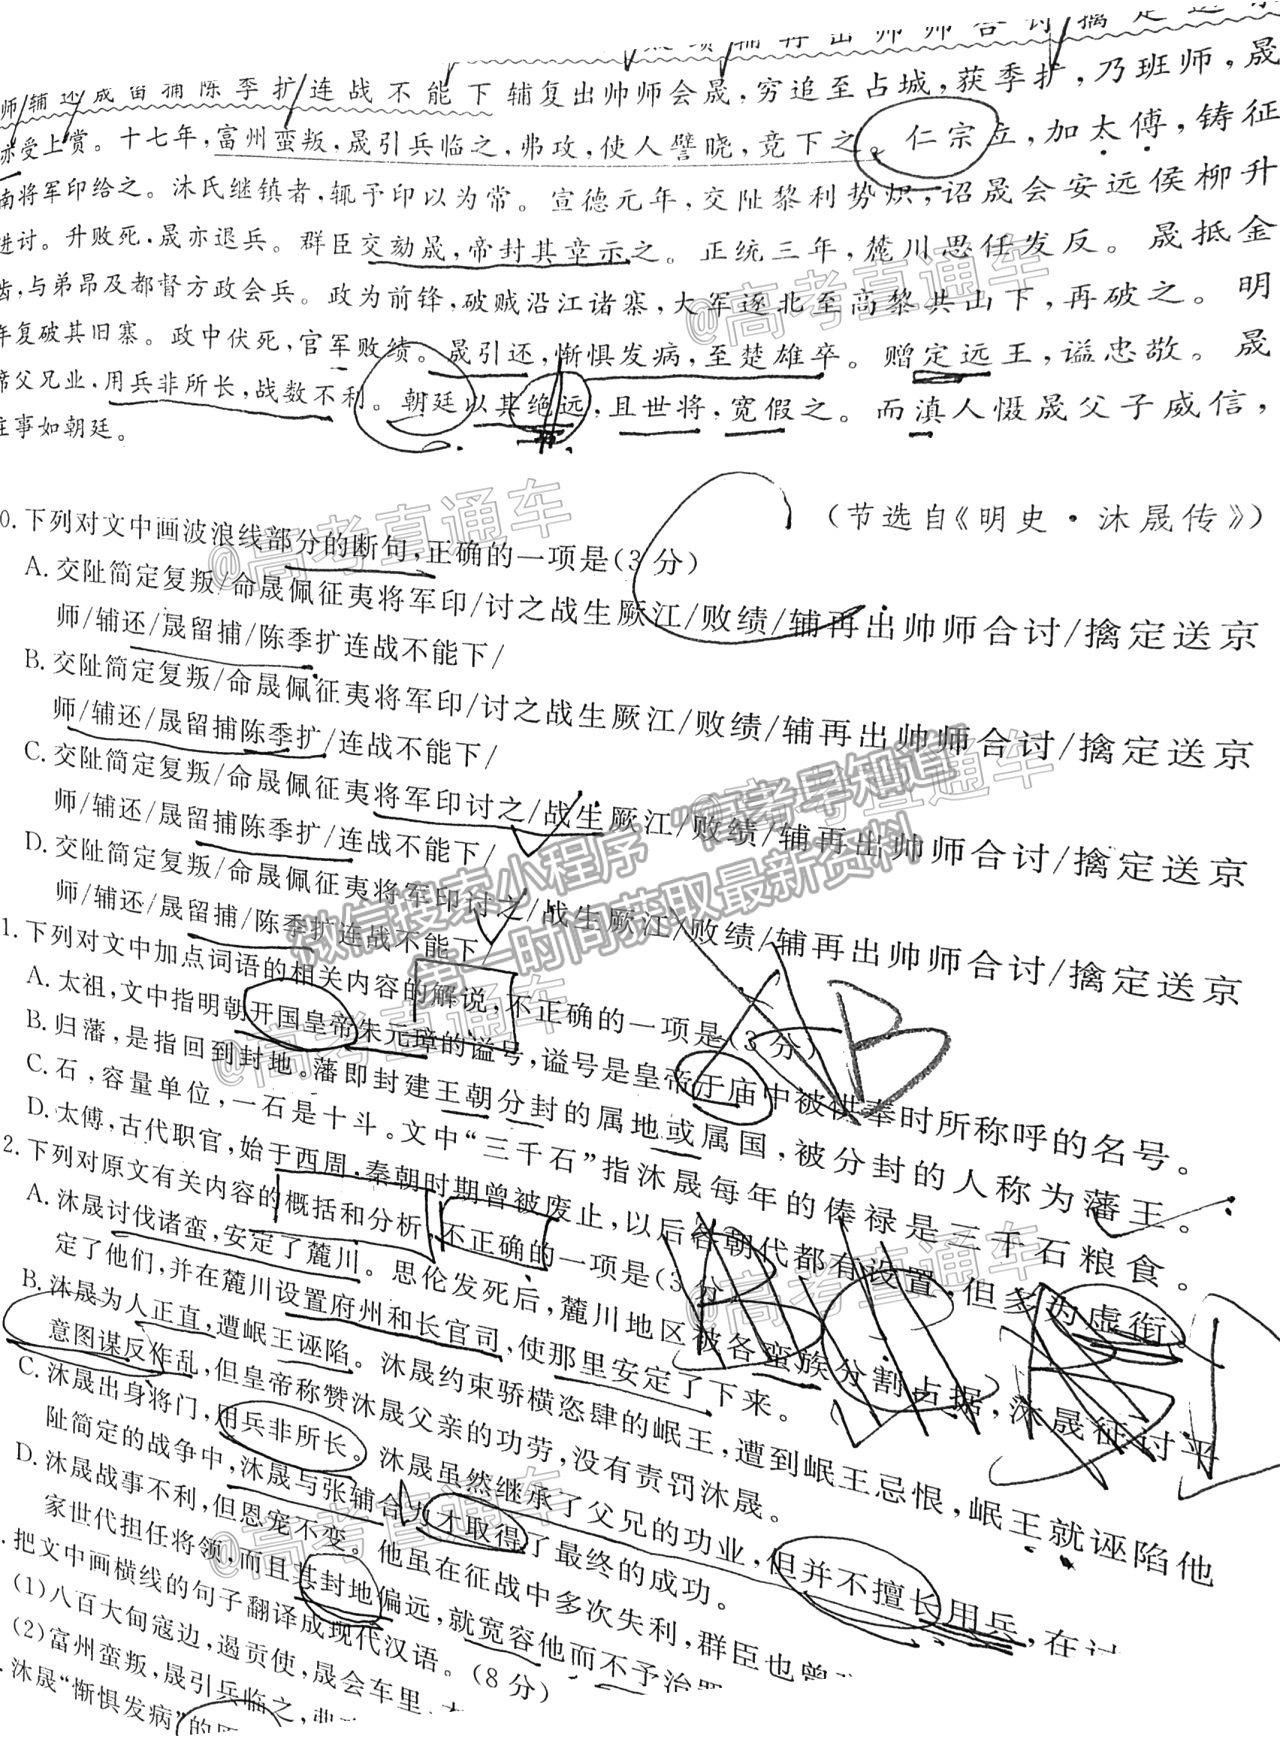 辅再出帅师合讨擒定送京
师辅还晟留捕陈季扩连战不能下辅复出帅师会晟,穷追至占城,获季扩,乃班师,晟
亦受上赏。十七年,富州蛮叛,晟引兵临之,弗攻,使人譬晓,竟下之。仁宗立,加太傅,铸征
南将军印给之。沐氏继镇者,辄予印以为常。宣德元年,交阯黎利势炽,诏晟会安远侯柳升
进讨。升败死,晟亦退兵。群臣交劾晟,帝封其章示之。正统三年,麓川思任发反。晟抵金
齿,与弟昂及都督方政会兵。政为前锋,破贼沿江诸寨,大军逐北至高黎共山下,再破之。明
年复破其旧寨。政中伏死,官军败绩。晟引还,惭惧发病,至楚雄卒。赠定远王,谥忠敬。晟
席父兄业,用兵非所长,战数不利。朝廷以其绝远,且世将,宽假之。而滇人慑晟父子威信,
庄事如朝廷。
(节选自《明史·沐晟传》)
0.下列对文中画波浪线部分的断句,正确的一项是(3分)
A.交阯简定复叛/命晟佩征夷将军印/讨之战生厥江/败绩/辅再出帅师合讨/擒定送京
师/辅还/晟留捕/陈季扩连战不能下/
B.交阯简定复叛/命晟佩征夷将军印/讨之战生厥江/败绩/辅再出帅师合讨/擒定送京
师/辅还/晟留捕陈季扩/连战不能下/
C.交阯简定复叛/命晟佩征夷将军印讨之/战生厥江/败绩/辅再出帅师合讨/擒定送京
师/辅还/晟留捕陈季扩/连战不能下/
D.交阯简定复叛/命晟佩征夷将军印讨之/战生厥江/败绩/辅再出帅师合讨/擒定送京
师/辅还/晟留捕/陈季扩连战不能下
1.下列对文中加点词语的相关内容的解说,不正确的一项是(3分)
A.太祖,文中指明朝开国皇帝朱元璋的谥号,谥号是皇帝于庙中被供奉时所称呼的名号。
B.归藩,是指回到封地。藩即封建王朝分封的属地或属国,被分封的人称为藩王。
C.石,容量单位,一石是十斗。文中“三千石”指沐晟每年的俸禄是三千石粮食。
D.太傅,古代职官,始于西周,秦朝时期曾被废止,以后各朝代都有设置,但多为虚衔。
2.下列对原文有关内容的概括和分析,不正确的一项是(3分
A.沐晟讨伐诸蛮,安定了麓川。思伦发死后,麓川地区被各蛮族分割占据,沐晟征讨平
定了他们,并在麓川设置府州和长官司,使那里安定了下来。
B.沐晟为人正直,遭岷王诬陷。沐晟约束骄横恣肆的岷王,遭到岷王忌恨,岷王就诬陷他
意图谋反作乱,但皇帝称赞沐晟父亲的功劳,没有责罚沐晟。
C.沐晟出身将门,用兵非所长。沐晟虽然继承了父兄的功业,但并不擅长用兵,在讨
阯简定的战争中,沐晟与张辅合力才取得了最终的成功。
D.沐晟战事不利,但恩宠不变。他虽在征战中多次失利,群臣也曾
家世代担任将领,而且其封地偏远,就宽容他而不予治罪
.把文中画横线的句子翻译成现代汉语。(8分)
(1)八百大甸寇边,遏贡使,晟会车里、
(2)富州蛮叛,晟引兵临之,弗
.沐晟“惭惧发病”的
B
@高考直通车
@高考直通车
@高考直通车
@高考直通车
@高考直通车
@高考直通车
微信搜索小程序“@高考早知道”
第一时间获取最新资料